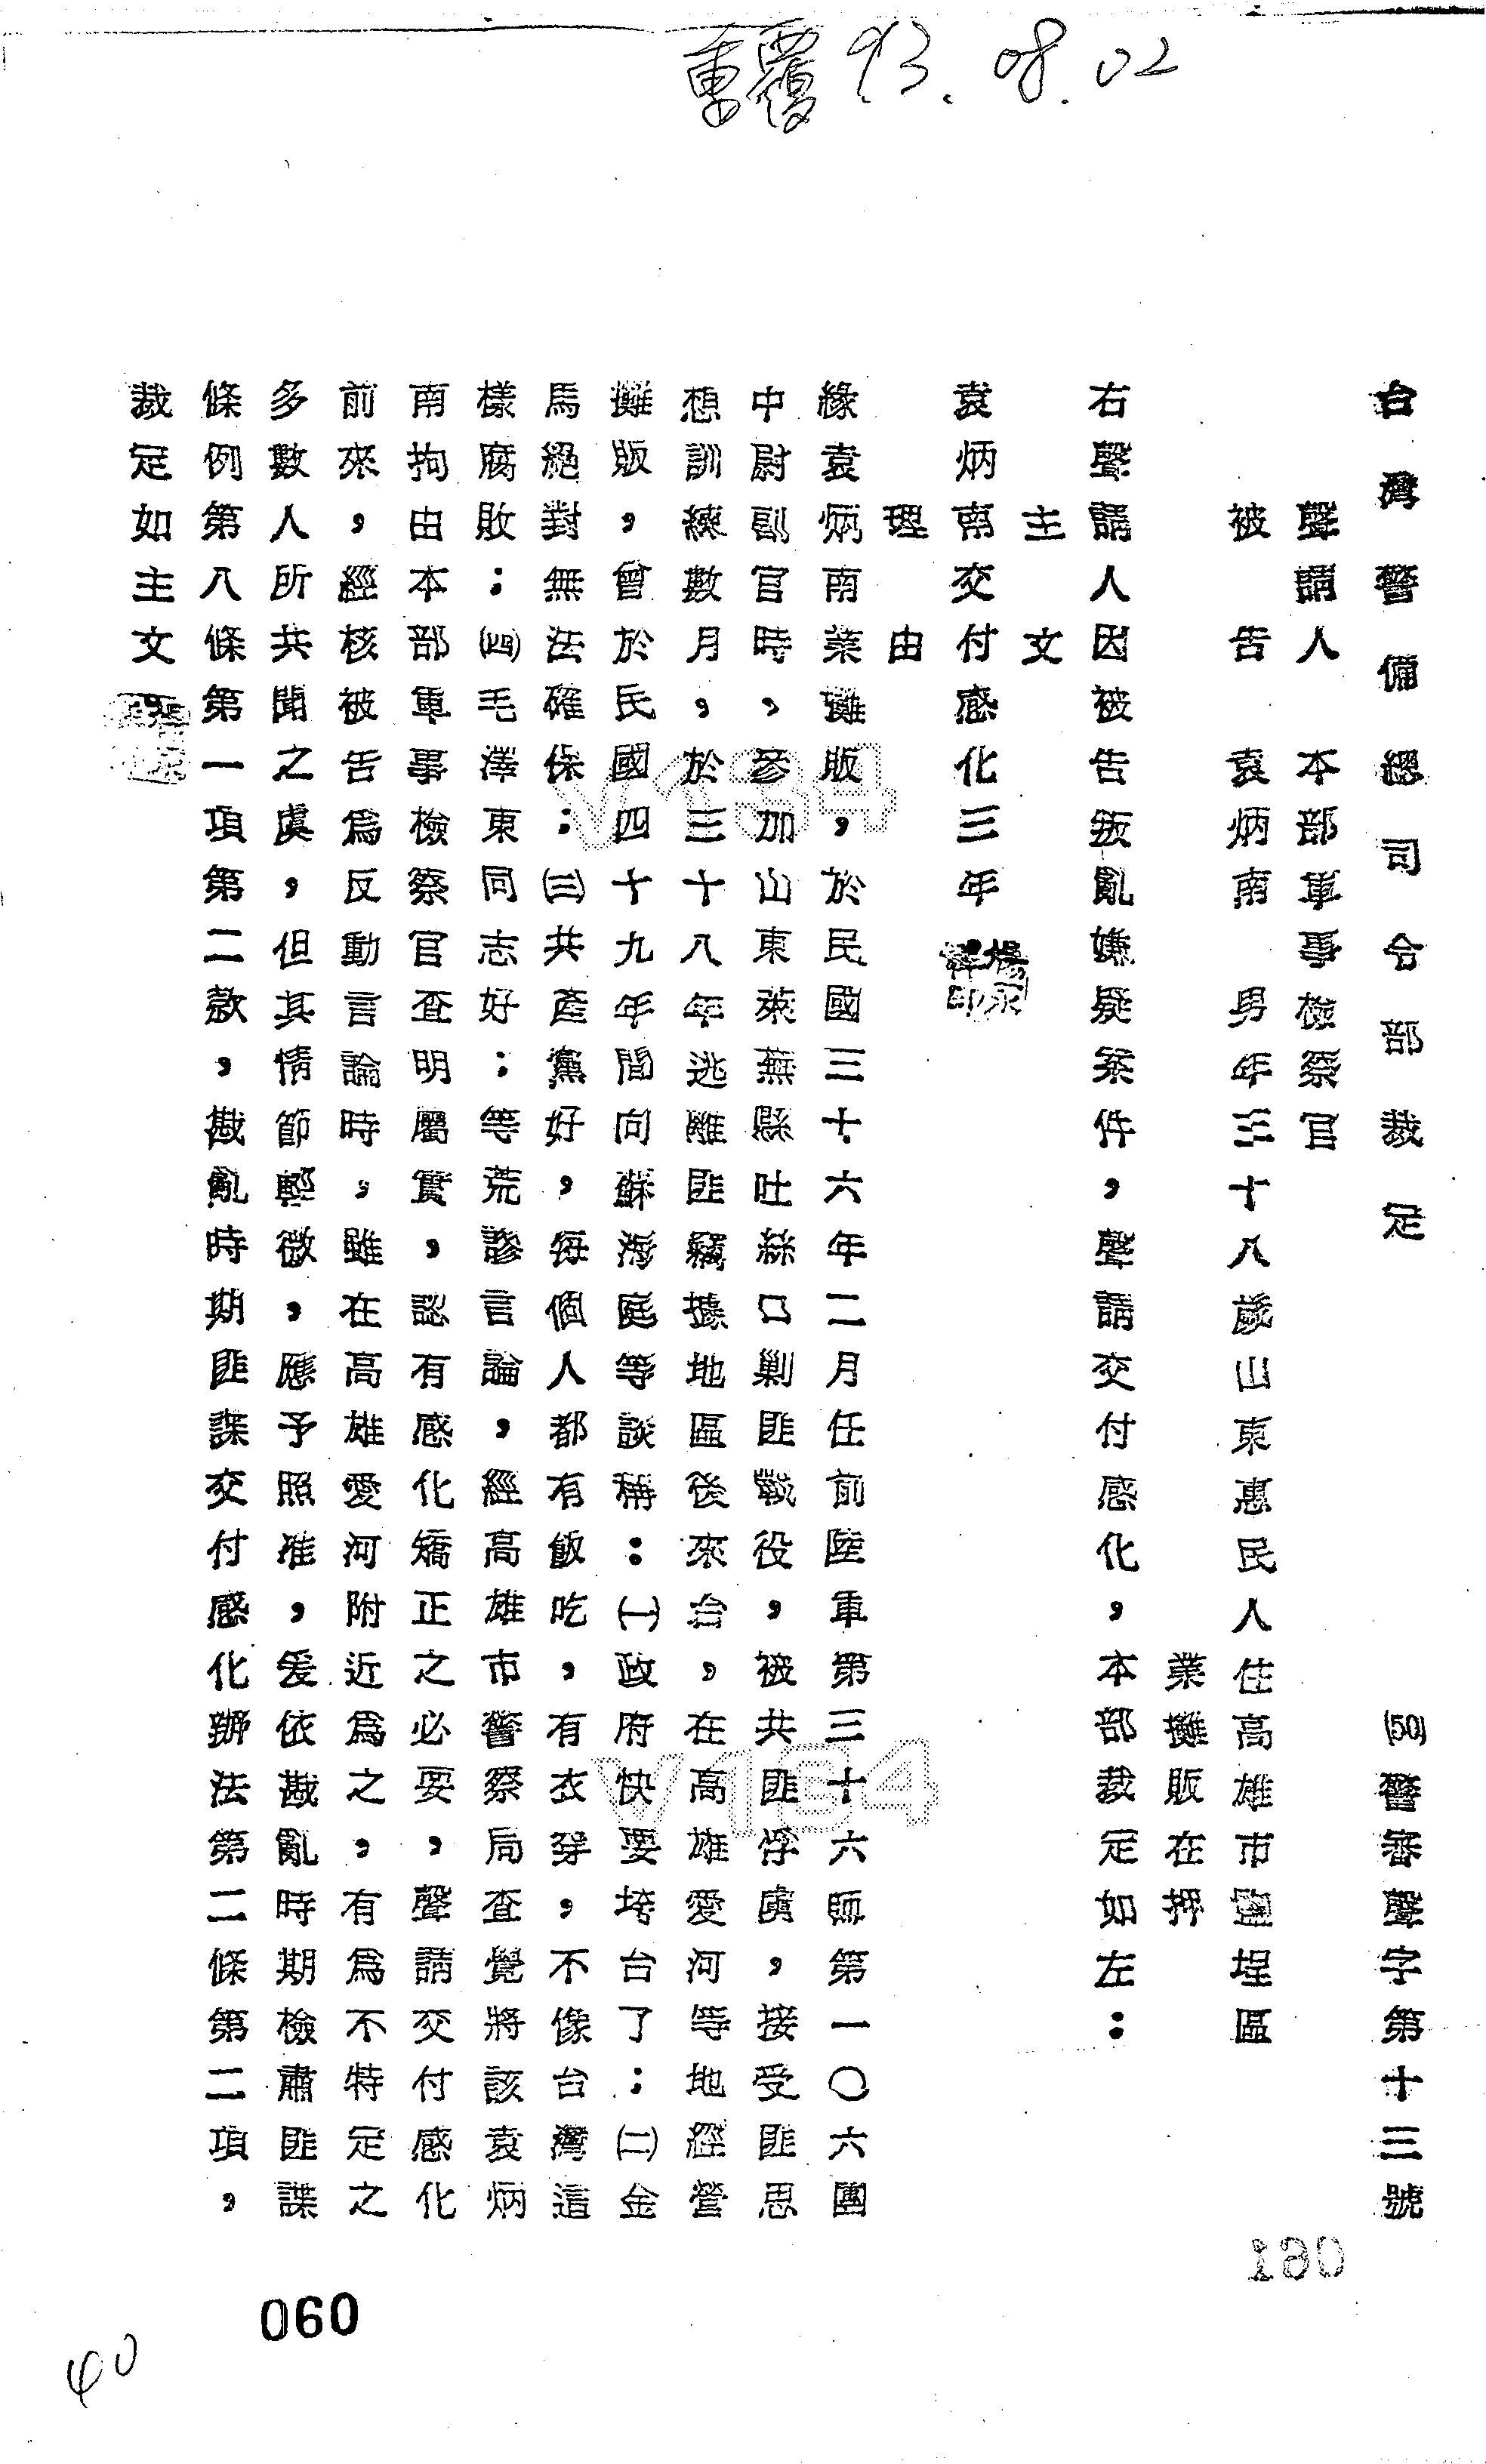 重覆 93.08.02
台灣警備總司令部裁定 (50)警審聲字第十三號
聲請人 本部軍事檢察官
被告 袁炳南 男年三十八歲山東惠民人住高雄市鹽埕區
業攤販在押
右聲請人因被告叛亂嫌疑案件，聲請交付感化，本部裁定如左：
主文
袁炳南交付感化三年。
理由
緣袁炳南業攤販，於民國三十六年二月任前陸軍第三十六師第一〇六團
中尉副官時，參加山東萊蕪縣吐絲口剿匪戰役，被共匪俘虜，接受匪思
想訓練數月，於三十八年逃離匪竊據地區後來台，在高雄愛河等地經營
攤販，曾於民國四十九年間向蘇海庭等談稱：㈠政府快要垮台了；㈡金
馬絕對無法確保；㈢共產黨好，每個人都有飯吃，有衣穿，不像台灣這
樣腐敗；㈣毛澤東同志好；等荒謬言論，經高雄市警察局查覺將該袁炳
南拘由本部軍事檢察官查明屬實，認有感化矯正之必要，聲請交付感化
前來，經核被告為反動言論時，雖在高雄愛河附近為之，有為不特定之
多數人所共聞之虞，但其情節輕微，應予照准，爰依戡亂時期檢肅匪諜
條例第八條第一項第二款，戡亂時期匪諜交付感化辦法第二條第二項，
裁定如主文。
V134
V134
130
060
40